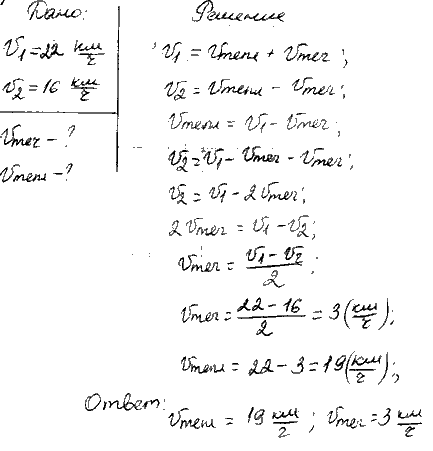 Дано:
V₁ = 22 км/ч
V₂ = 16 км/ч
Vтеч - ?
Vтепл - ?
Решение
V₁ = Vтепл + Vтеч;
V₂ = Vтепл - Vтеч;
Vтепл = V₁ - Vтеч;
V₂ = V₁ - Vтеч - Vтеч;
V₂ = V₁ - 2Vтеч;
2Vтеч = V₁ - V₂;
Vтеч = (V₁ - V₂)/2;
Vтеч = (22 - 16)/2 = 3 (км/ч);
Vтепл = 22 - 3 = 19 (км/ч);
Ответ:
Vтепл = 19 км/ч; Vтеч = 3 км/ч